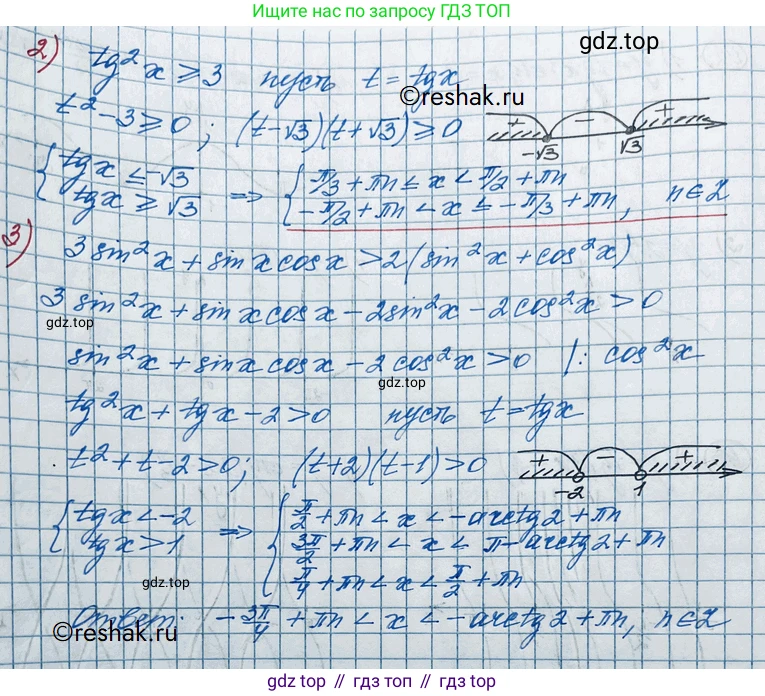 Ищите нас по запросу ГДЗ ТОП
gdz.top
2) tg²x ≥ 3 пусть t = tgx
©reshak.ru
t² - 3 ≥ 0; (t - √3)(t + √3) ≥ 0
+ - +
-√3 √3
{ tgx ≤ -√3
tgx ≥ √3 ⇒ { π/3 + πn ≤ x < π/2 + πn
-π/2 + πn < x ≤ -π/3 + πn, n∈Z
3) 3 sin²x + sinx cosx > 2(sin²x + cos²x)
3 sin²x + sinx cosx - 2sin²x - 2cos²x > 0
gdz.top
sin²x + sinx cosx - 2cos²x > 0 |: cos²x
gdz.top
tg²x + tgx - 2 > 0 пусть t = tgx
t² + t - 2 > 0; (t+2)(t-1) > 0
+ - +
-2 1
{ tgx < -2
tgx > 1 ⇒ { π/2 + πn < x < -arctg2 + πn
3π/2 + πn < x < π - arctg2 + πn
π/4 + πn < x < π/2 + πn
gdz.top
Ответ: -3π/4 + πn < x < -arctg2 + πn, n∈Z
©reshak.ru
gdz.top // гдз.топ // gdz.top // гдз.топ